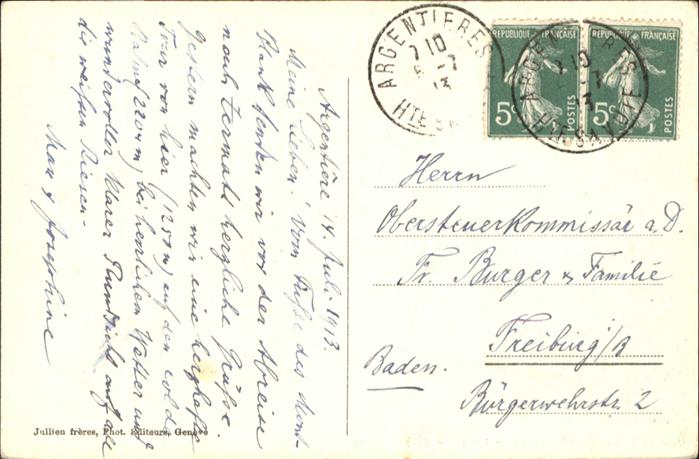 Argentière 14. Juli 1913.
Meine Lieben! Vom Fuße des Mont-
blank senden wir vor der Abreise
nach Zermatt herzliche Grüße.
Gestern machten wir eine
Tour von hier (1250 m) auf den col de
Balme (2201 m), bei herrlichem Wetter und
wundervoller klarer Rundsicht auf die
die weißen Riesen.
Max & Josephine
Jullien frères, Phot. Editeurs, Genève
ARGENTIERES
7 10
HTE SA
REPUBLIQUE FRANÇAISE
5c
POSTES
REPUBLIQUE FRANÇAISE
5c
POSTES
7 10
13
HTE SAVOIE
Herrn
Obersteuerkommissär a. D.
Fr. Burger & Familie
Freiburg i/B
Baden.
Bürgerwehrstr. 2